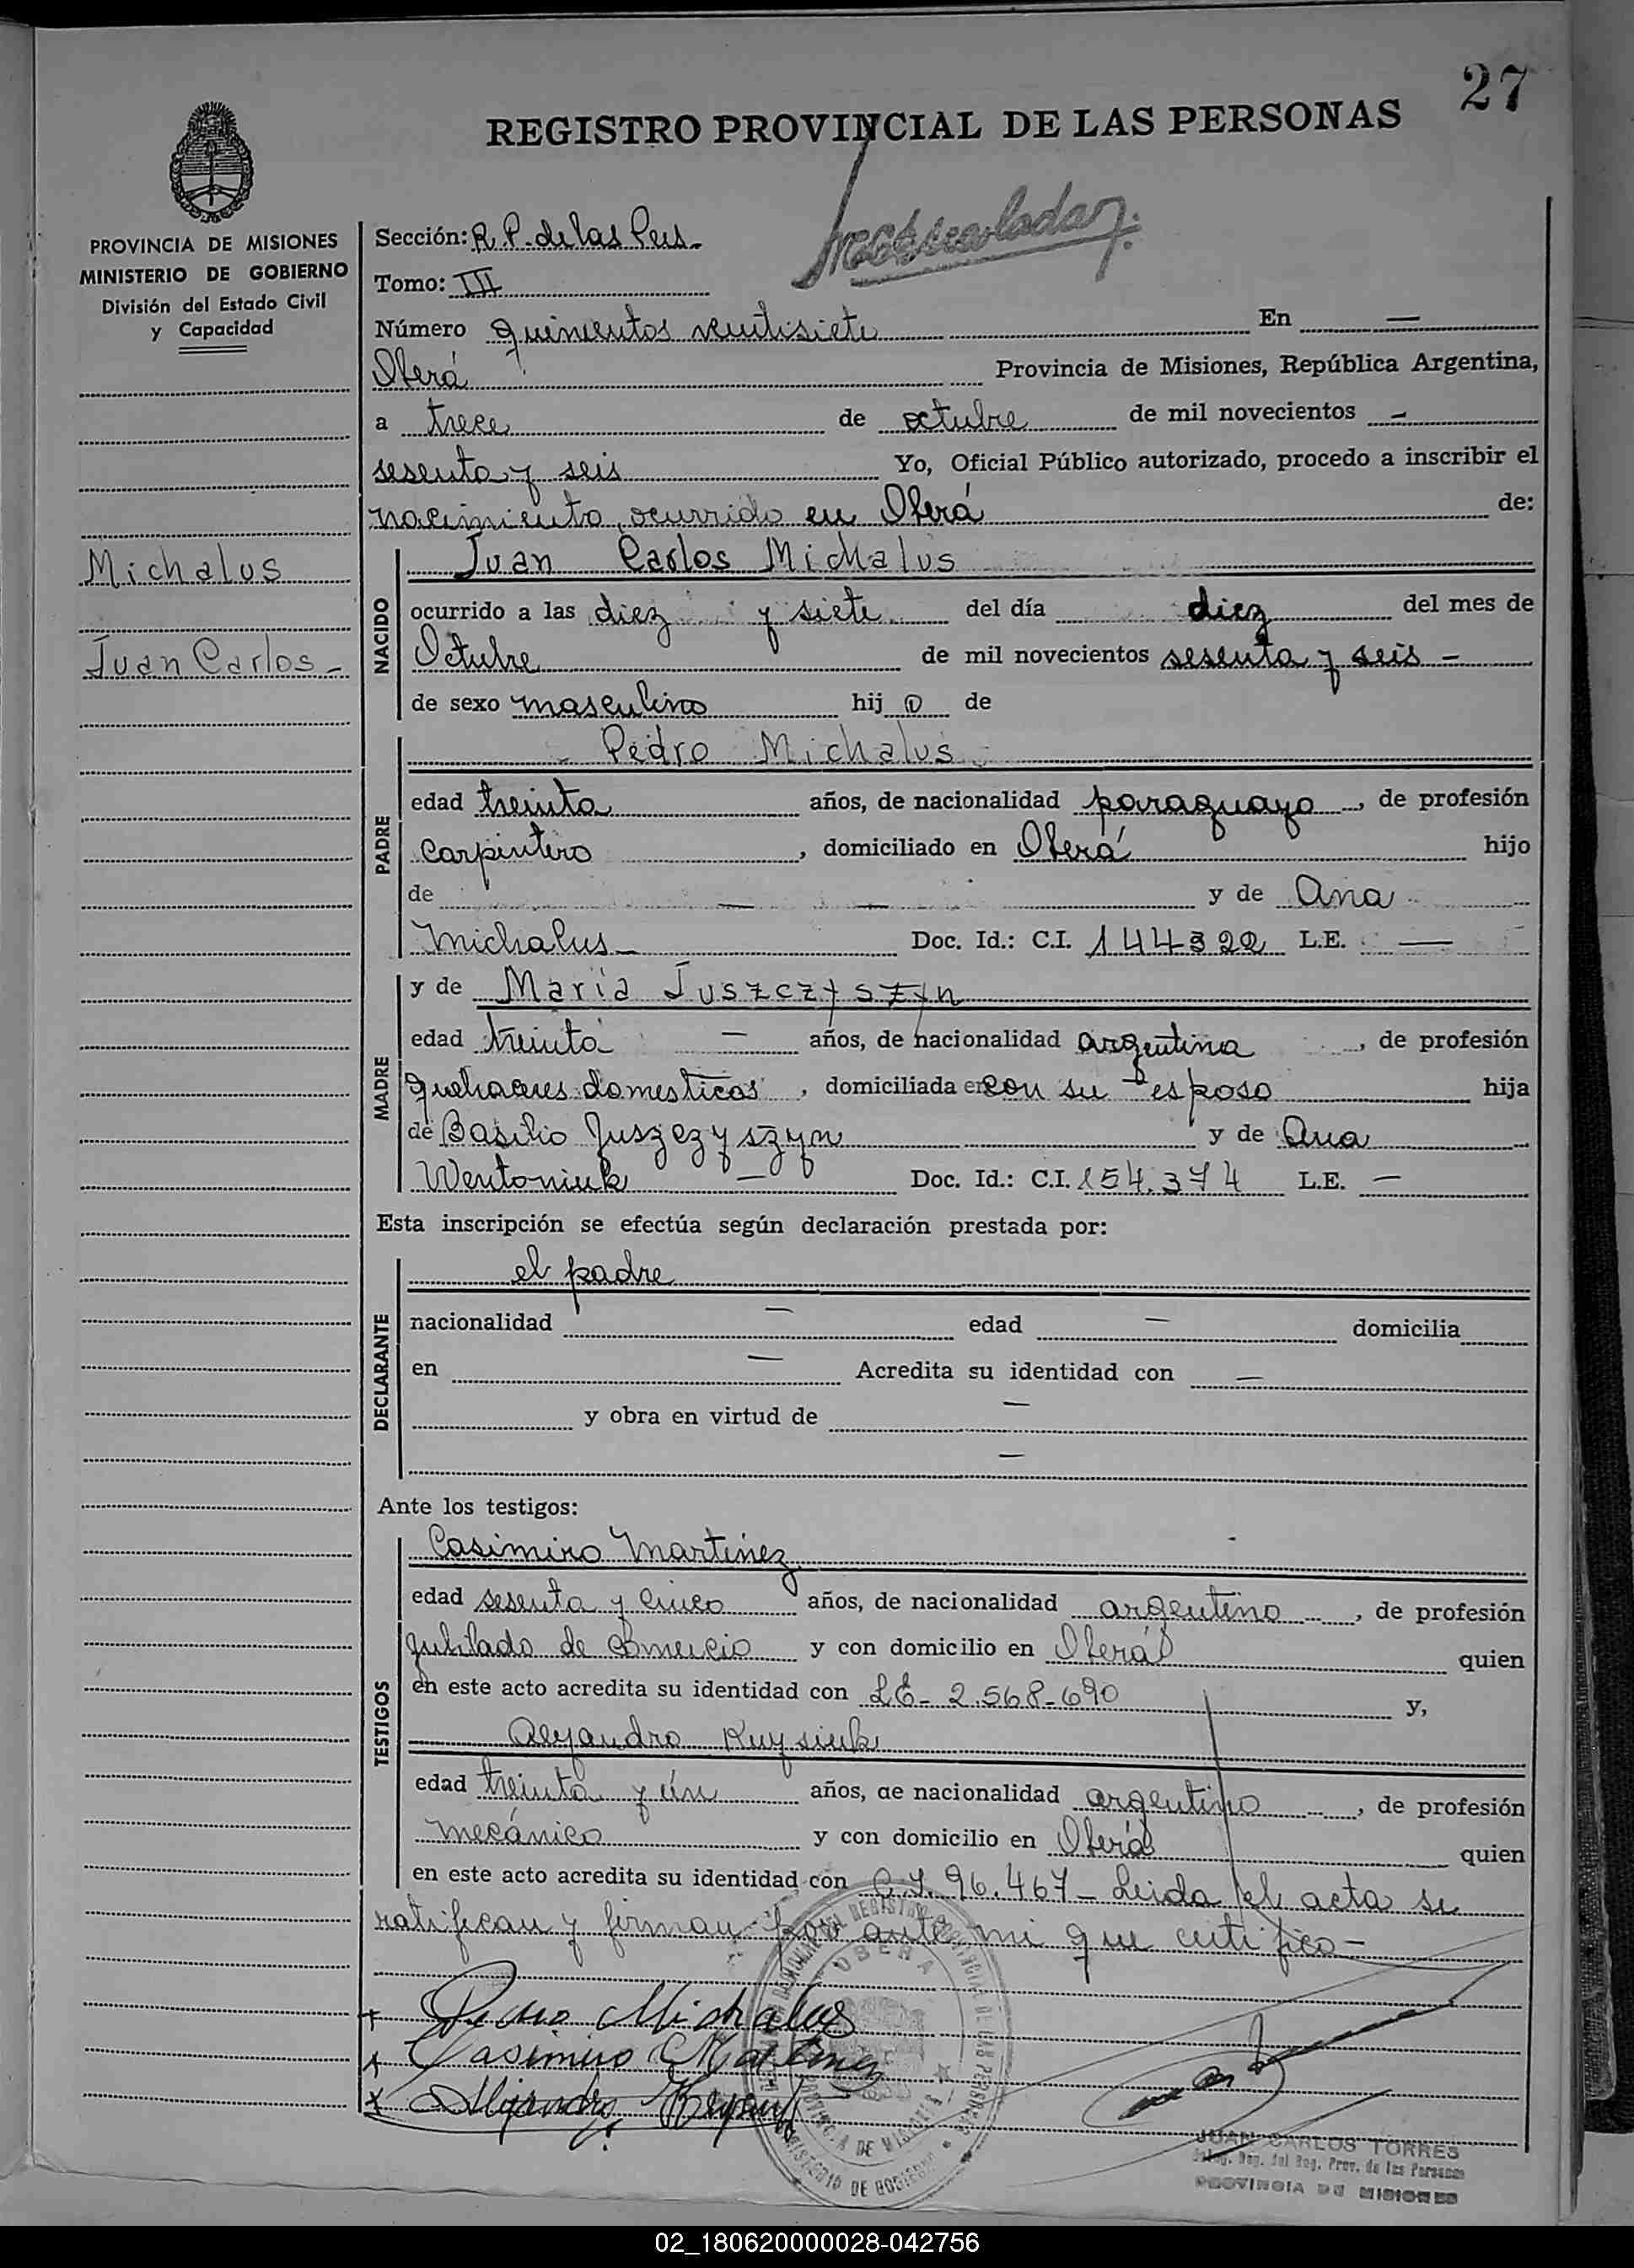 27
REGISTRO PROVINCIAL DE LAS PERSONAS
PROVINCIA DE MISIONES
MINISTERIO DE GOBIERNO
División del Estado Civil
y Capacidad
Michalus
Juan Carlos -
Sección: R. P. de las Pers.
Tomo: III
Número quinientos ventisiete En —
Oberá Provincia de Misiones, República Argentina,
a trece de octubre de mil novecientos –
sesenta y seis Yo, Oficial Público autorizado, procedo a inscribir el
nacimiento ocurrido en Oberá de:
NACIDO
Juan Carlos Michalus
ocurrido a las diez y siete del día diez del mes de
Octubre de mil novecientos sesenta y seis –
de sexo masculino hij o de
PADRE
Pedro Michalus
edad treinta años, de nacionalidad paraguayo, de profesión
carpintero, domiciliado en Oberá hijo
de — — y de Ana
Michalus – Doc. Id.: C.I. 144322 L.E. —
MADRE
y de María Juszczyszyn
edad treinta — años, de nacionalidad argentina, de profesión
quehaceres domesticos, domiciliada en con su esposo hija
de Basilio Juszczyszyn y de Ana
Wentoniuk — Doc. Id.: C.I. 154.374 L.E. —
Esta inscripción se efectúa según declaración prestada por:
DECLARANTE
el padre
nacionalidad — edad — domicilia
en — Acredita su identidad con —
y obra en virtud de —
—
Ante los testigos:
TESTIGOS
Casimiro Martinez
edad sesenta y cinco años, de nacionalidad argentino, de profesión
jubilado de comercio y con domicilio en Oberá quien
en este acto acredita su identidad con L.E- 2.568-690 y,
Alejandro Kuysiuk
edad treinta y ún años, de nacionalidad argentino, de profesión
mecánico y con domicilio en Oberá quien
en este acto acredita su identidad con C.I. 96.467 – Leida el acta se
ratifican y firman por ante mi que certifico –
Pedro Michalus
Casimiro Martinez
Alejandro
OBERA
JUAN CARLOS TORRES
Reg. del Reg. Prov. de las Personas
PROVINCIA DE MISIONES
02_180620000028-042756